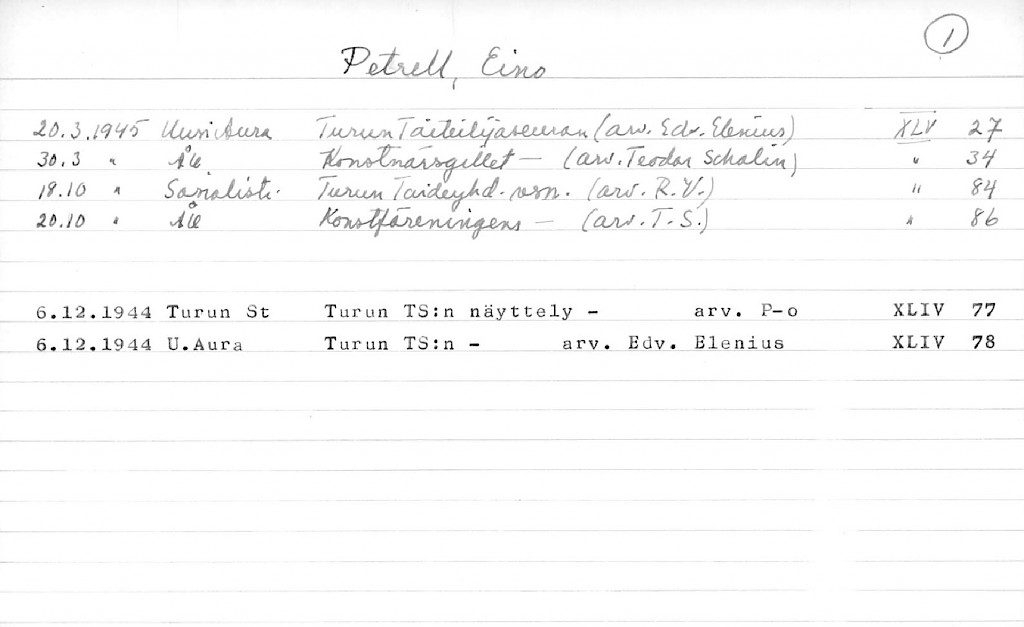 1
Petrell, Eino
20.3.1945 Uusi Aura Turun Taiteilijaseuran (arv. Edv. Elenius) XLV 27
30.3 " ÅU Konstnärsgillet — (arv. Teodor Schalin) " 34
18.10 " Sosialisti. Turun Taideyhd. vsn. (arv. R.V.) " 84
20.10 " ÅU Konstföreningens — (arv. T.S.) " 86
6.12.1944 Turun St Turun TS:n näyttely - arv. P-o XLIV 77
6.12.1944 U.Aura Turun TS:n - arv. Edv. Elenius XLIV 78